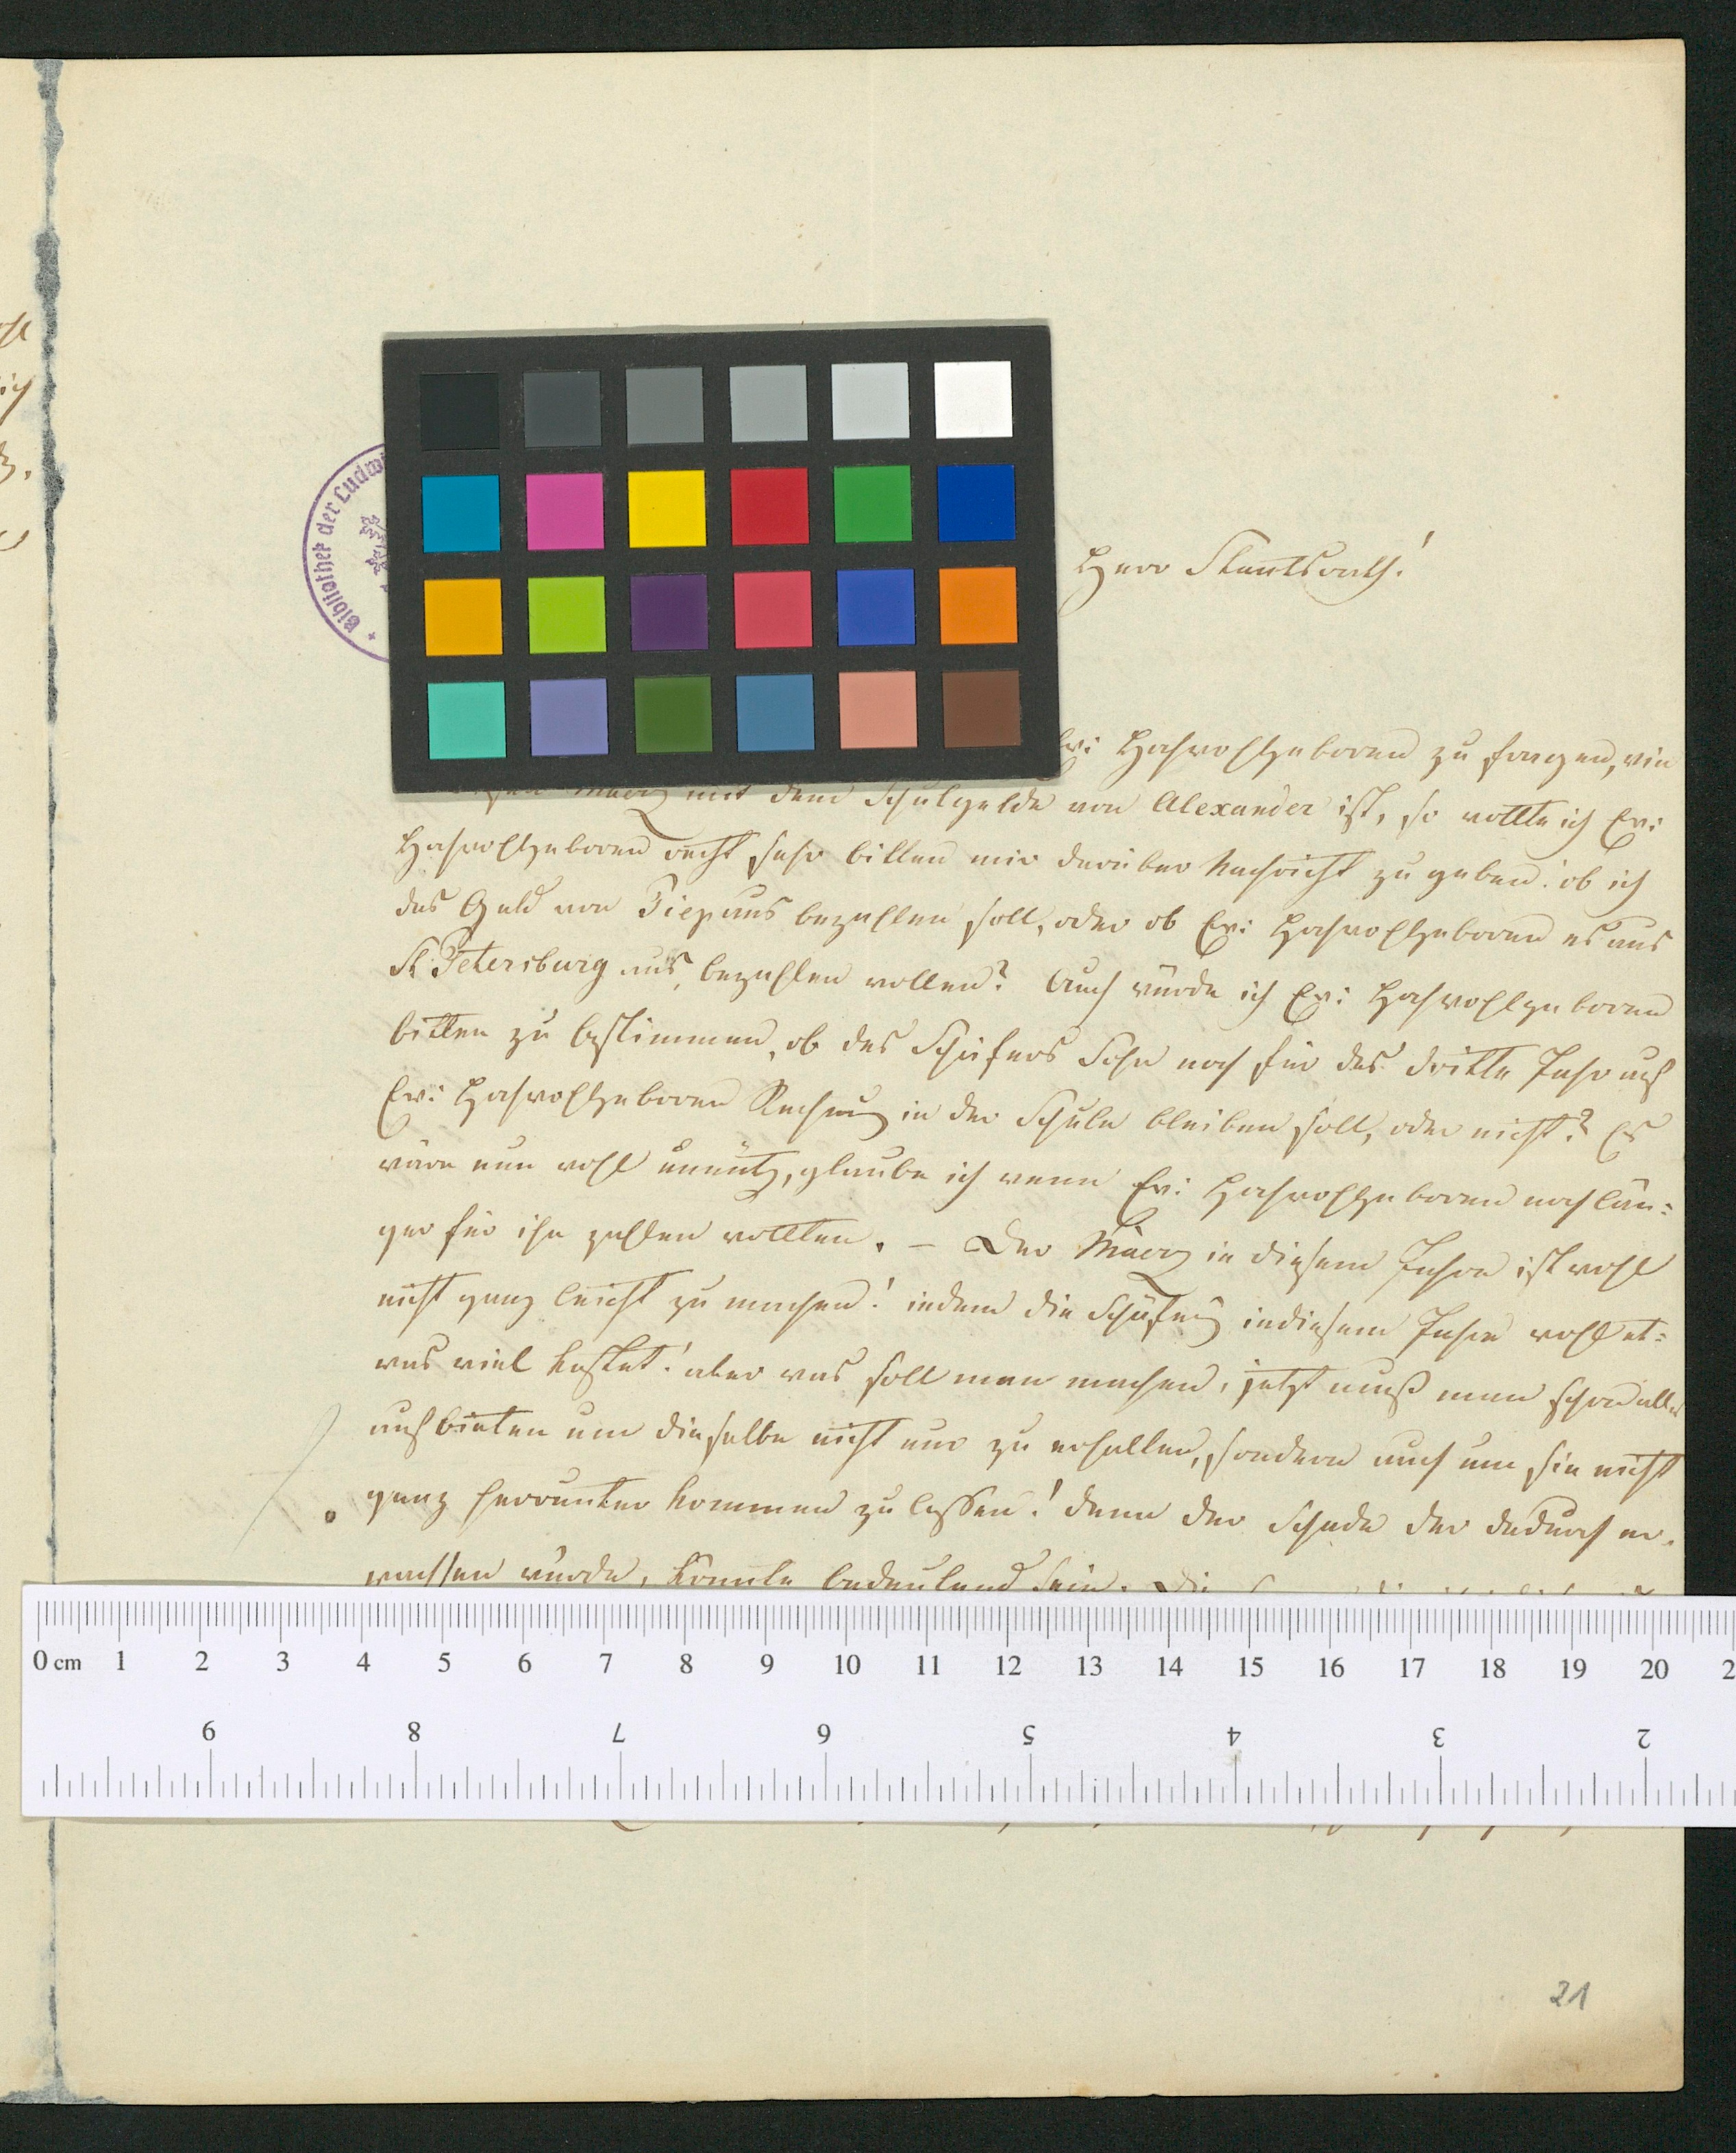 Bibliothek der Ludwi
Herr Staatsrath!
Ew: Hochwohlgeboren zu sorgen, wie
März mit dem Schulgelde von Alexander ist, so wollte ich Ew:
Hochwohlgeboren recht sehr bitten mir darüber Nachricht zu geben: ob ich
das Geld von Piep aus bezahlen soll, oder ob Ew: Hochwohlgeboren es aus
St Petersburg aus, bezahlen wollen? Auch würde ich Ew: Hochwohlgeboren
bitten zu bestimmen, ob des Schäfers Sohn noch für das dritte Jahr auf
Ew: Hochwohlgeboren Rechnung in der Schule bleiben soll, oder nicht? Es
wäre nun wohl unnütz, glaube ich wenn Ew: Hochwohlgeboren noch län:
ger für ihn zahlen wollten. – Der März in diesem Jahre ist wohl
nicht ganz leicht zu machen! indem die Schäferei in diesem Jahre wohl et=
was viel kostet! aber was soll man machen, jetzt muß man schon alles
aufbieten um dieselbe nicht nur zu erhalten, sondern auch um sie nicht
ganz herrunter kommen zu lassen! denn der Schade der dadurch er.
wachsen würde, könnte bedeutend sein. Die
0 cm 1 2 3 4 5 6 7 8 9 10 11 12 13 14 15 16 17 18 19 20 2
9 8 7 6 5 4 3 2
21